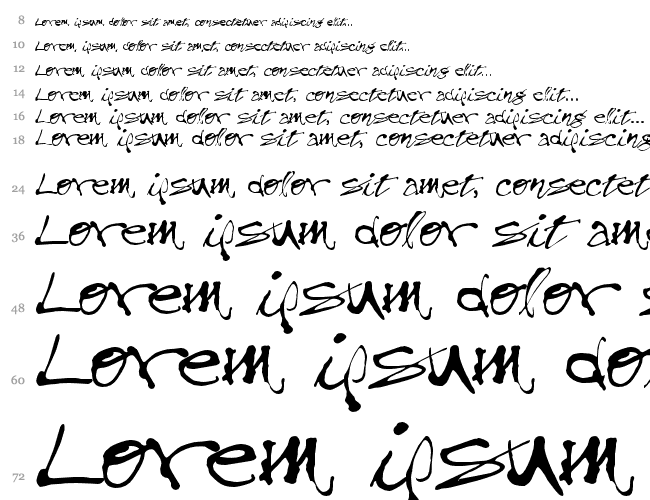 8 Lorem, ipsum, dolor sit amet, consectetuer adipiscing elit...
10 Lorem, ipsum, dolor sit amet, consectetuer adipiscing elit...
12 Lorem, ipsum, dolor sit amet, consectetuer adipiscing elit...
14 Lorem, ipsum, dolor sit amet, consectetuer adipiscing elit...
16 Lorem, ipsum, dolor sit amet, consectetuer adipiscing elit...
18 Lorem, ipsum, dolor sit amet, consectetuer adipiscing
24 Lorem, ipsum, dolor sit amet, consectet
36 Lorem, ipsum, dolor sit am
48 Lorem, ipsum, dolor s
60 Lorem, ipsum, do
72 Lorem, ipsum,